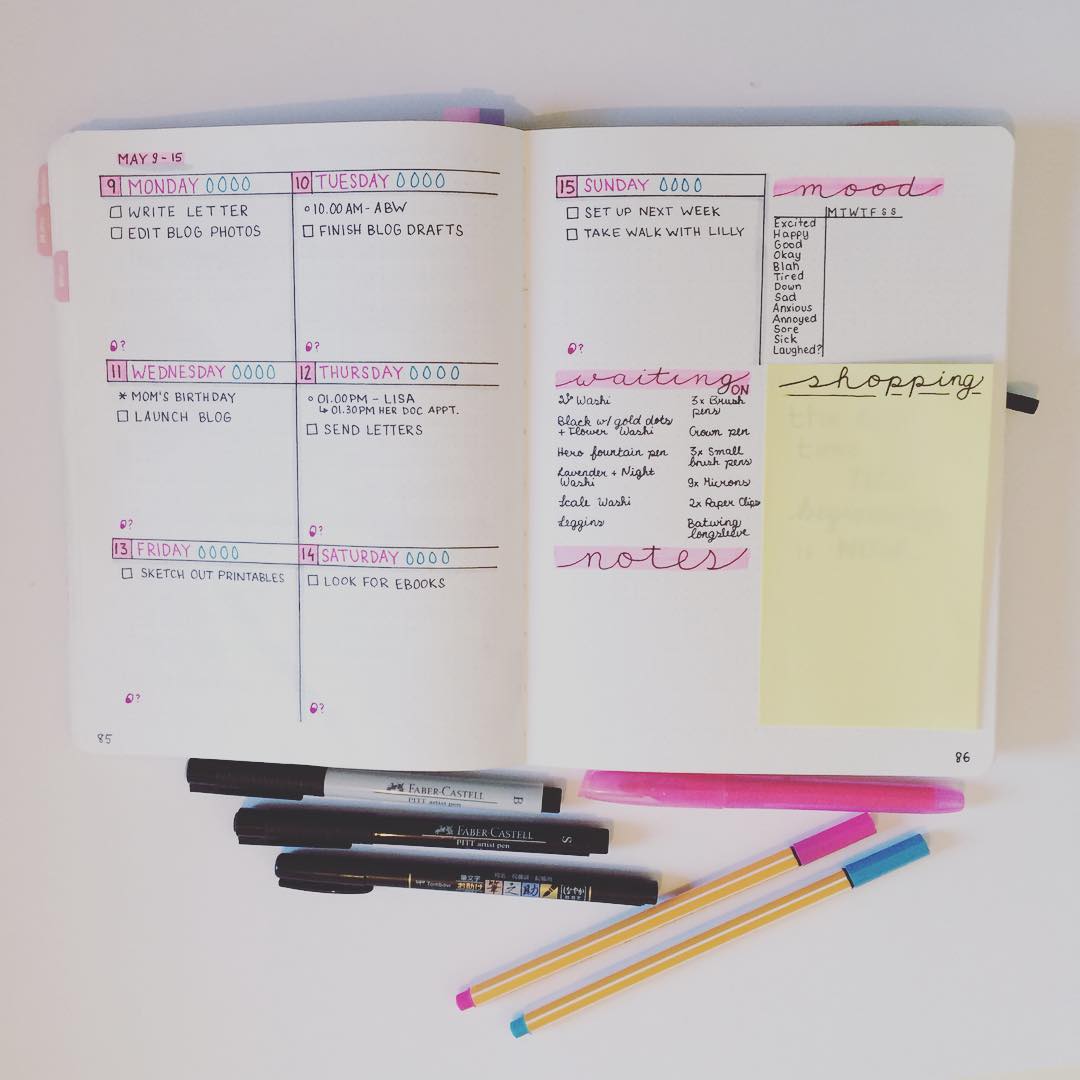 MAY 9-15
9 MONDAY
WRITE LETTER
EDIT BLOG PHOTOS
?
10 TUESDAY
10.00AM - ABW
FINISH BLOG DRAFTS
?
11 WEDNESDAY
* MOM'S BIRTHDAY
LAUNCH BLOG
?
12 THURSDAY
01.00PM - LISA
↳ 01.30PM HER DOC APPT.
SEND LETTERS
?
13 FRIDAY
SKETCH OUT PRINTABLES
?
14 SATURDAY
LOOK FOR EBOOKS
?
85
15 SUNDAY
SET UP NEXT WEEK
TAKE WALK WITH LILLY
?
mood
M T W T F S S
Excited
Happy
Good
Okay
Blah
Tired
Down
Sad
Anxious
Annoyed
Sore
Sick
Laughed?
waiting
ON
Washi
Black w/ gold dots
+ Flower Washi
Hero fountain pen
Lavender + Night
Washi
Scale Washi
Leggins
3x Brush
pens
Crown pen
3x Small
brush pens
9x Microns
2x Paper Clips
Batwing
longsleeve
notes
shopping
86
FABER-CASTELL
PITT artist pen
B
FABER-CASTELL
PITT artist pen
S
Tombow
筆之助